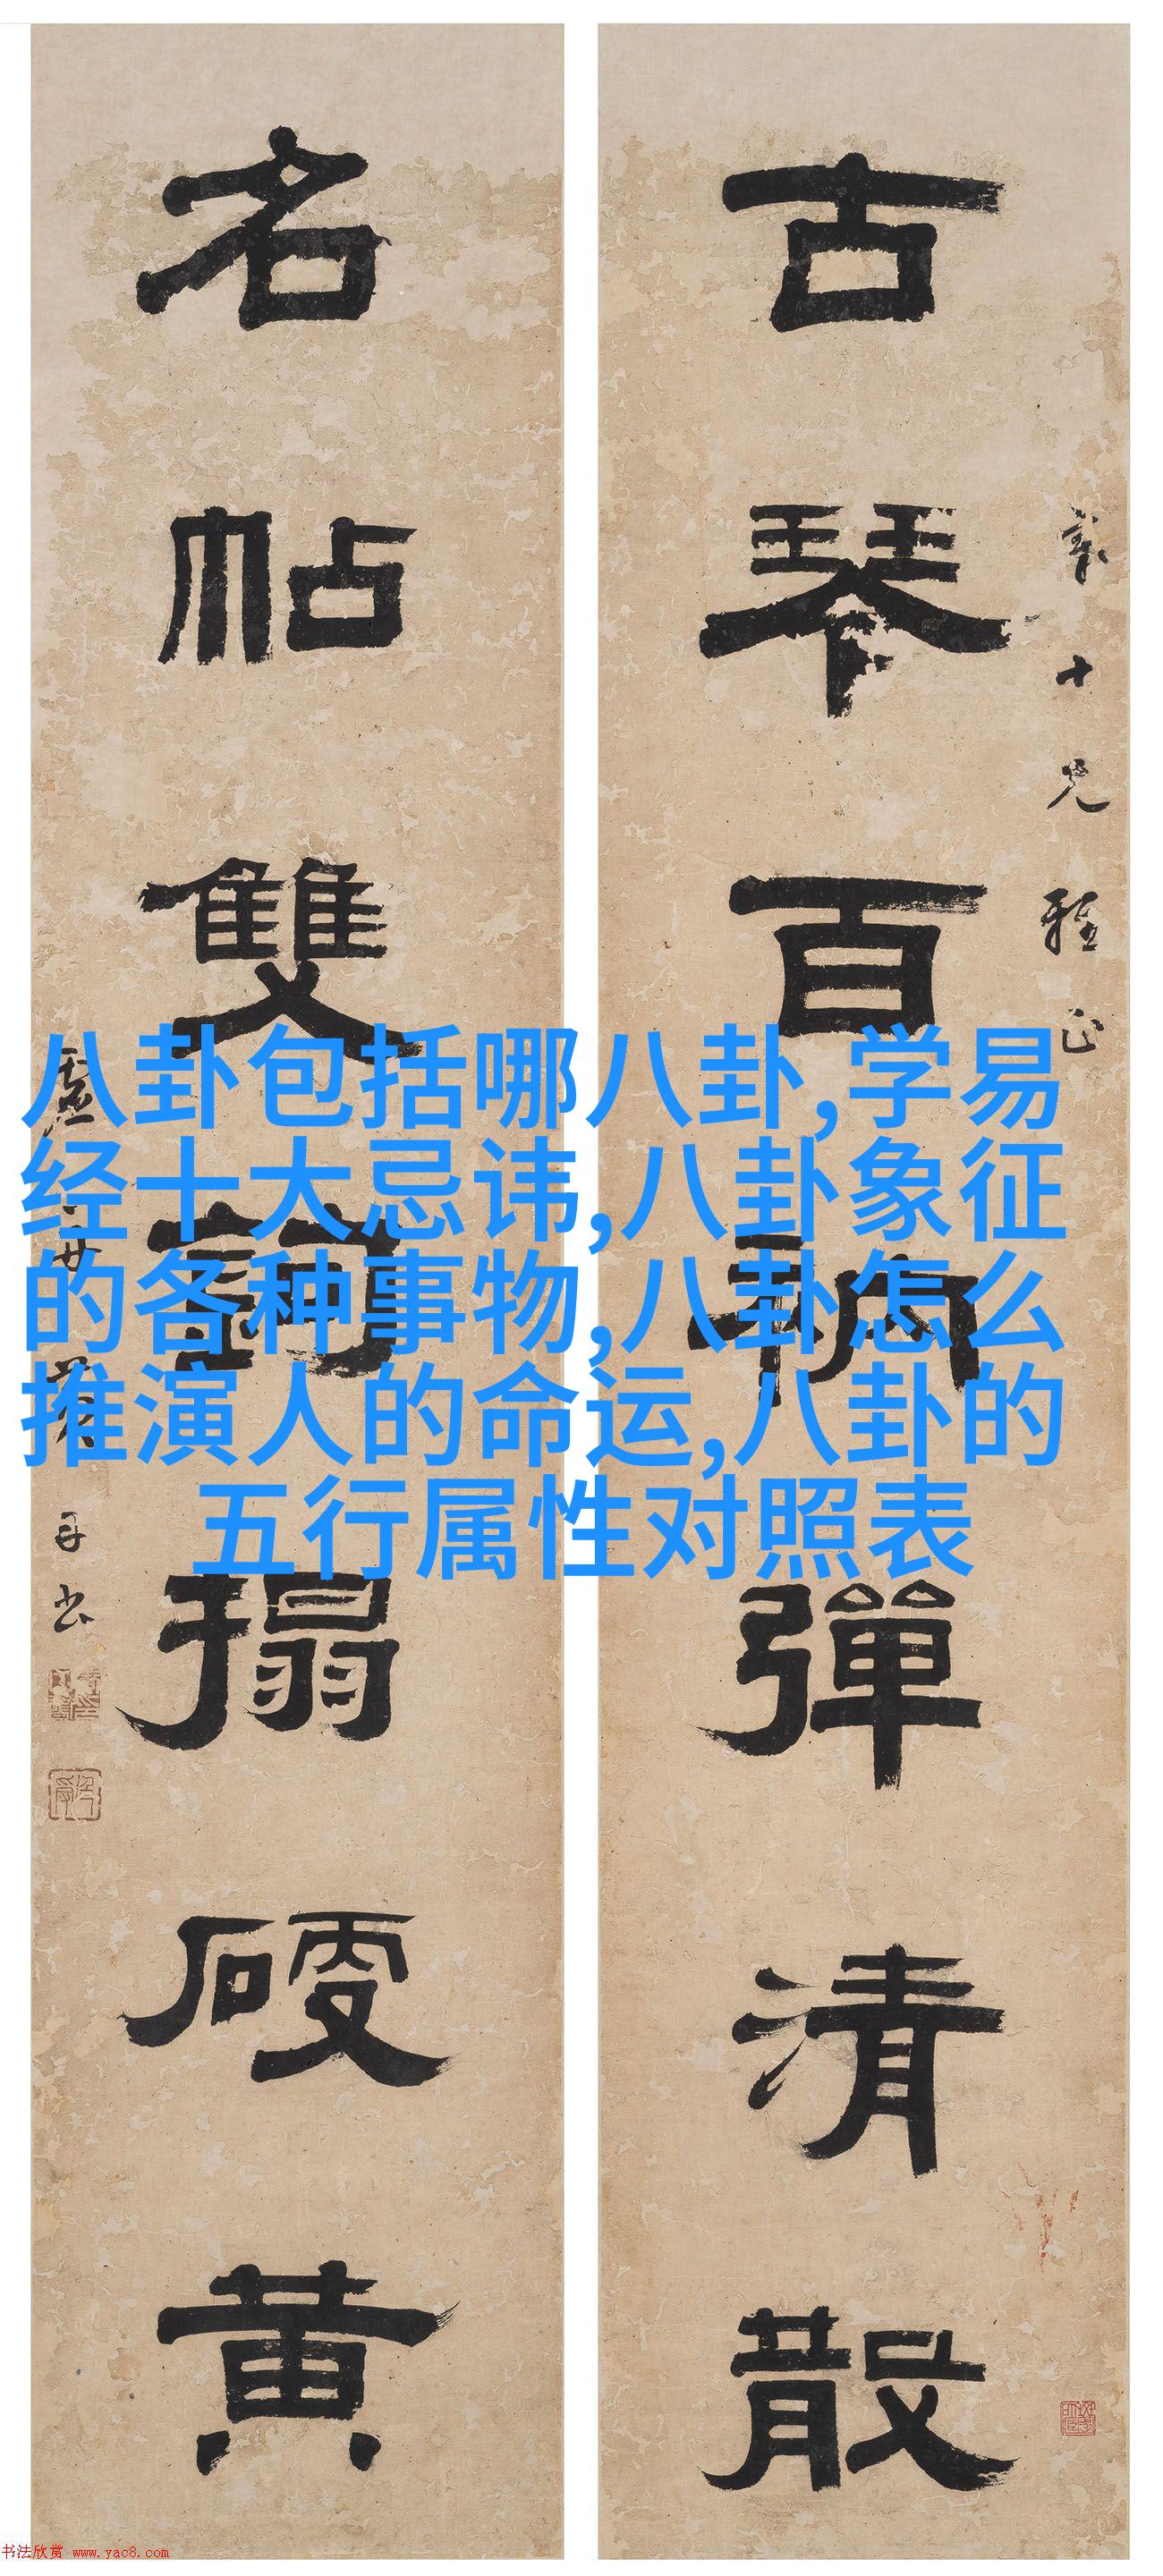 古琴百衲彈清散
十兄雅正
名帖雙鉤搨硬黃
八卦包括哪八卦,学易
经十大忌讳,八卦象征
的各种事物,八卦怎么
推演人的命运,八卦的
五行属性对照表
书法欣赏 www.yac8.com